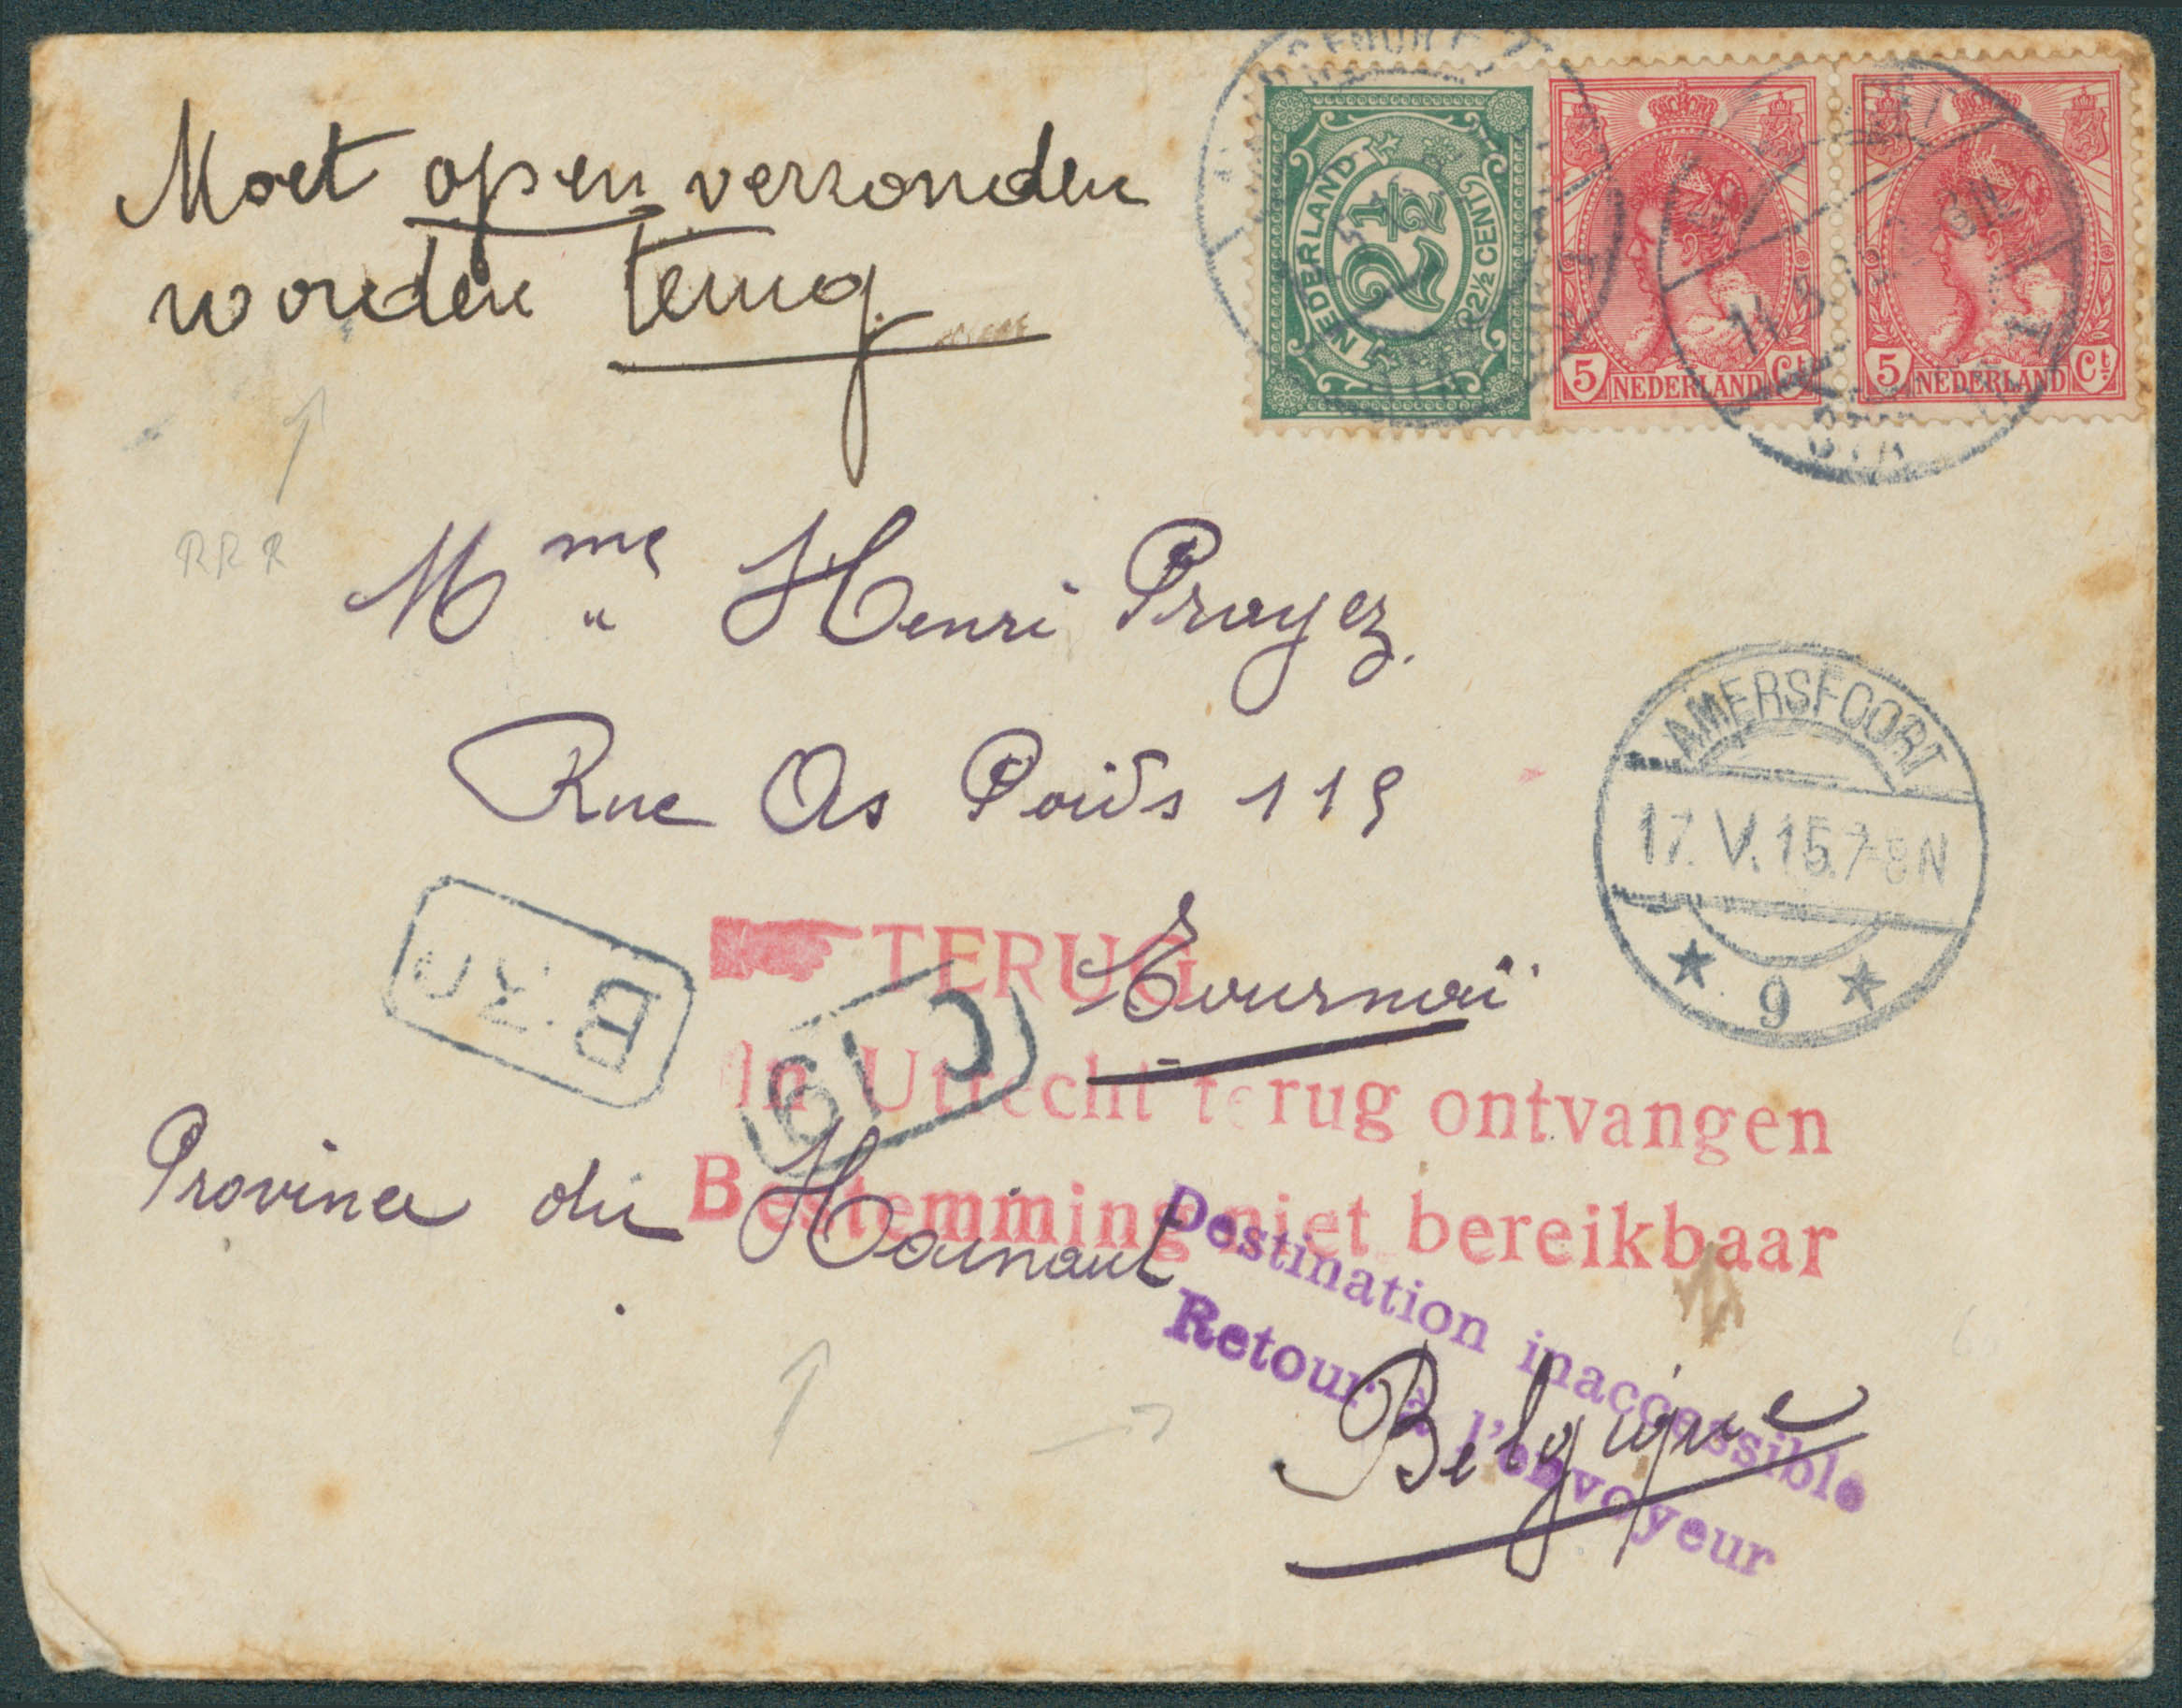 Moet open verzonden
worden terug
NEDERLAND
2½
2½ CENT
5 NEDERLAND Ct
5 NEDERLAND Ct
RRR
Mme Henri Proyez.
Rue As Poids 119
AMERSFOORT
17.V.15.7-8N
9
TERUG
Tournai
B 30
C 19
In Utrecht terug ontvangen
Province du Hainaut
Bestemming niet bereikbaar
Destination inaccessible
Retour à l'envoyeur
Belgique